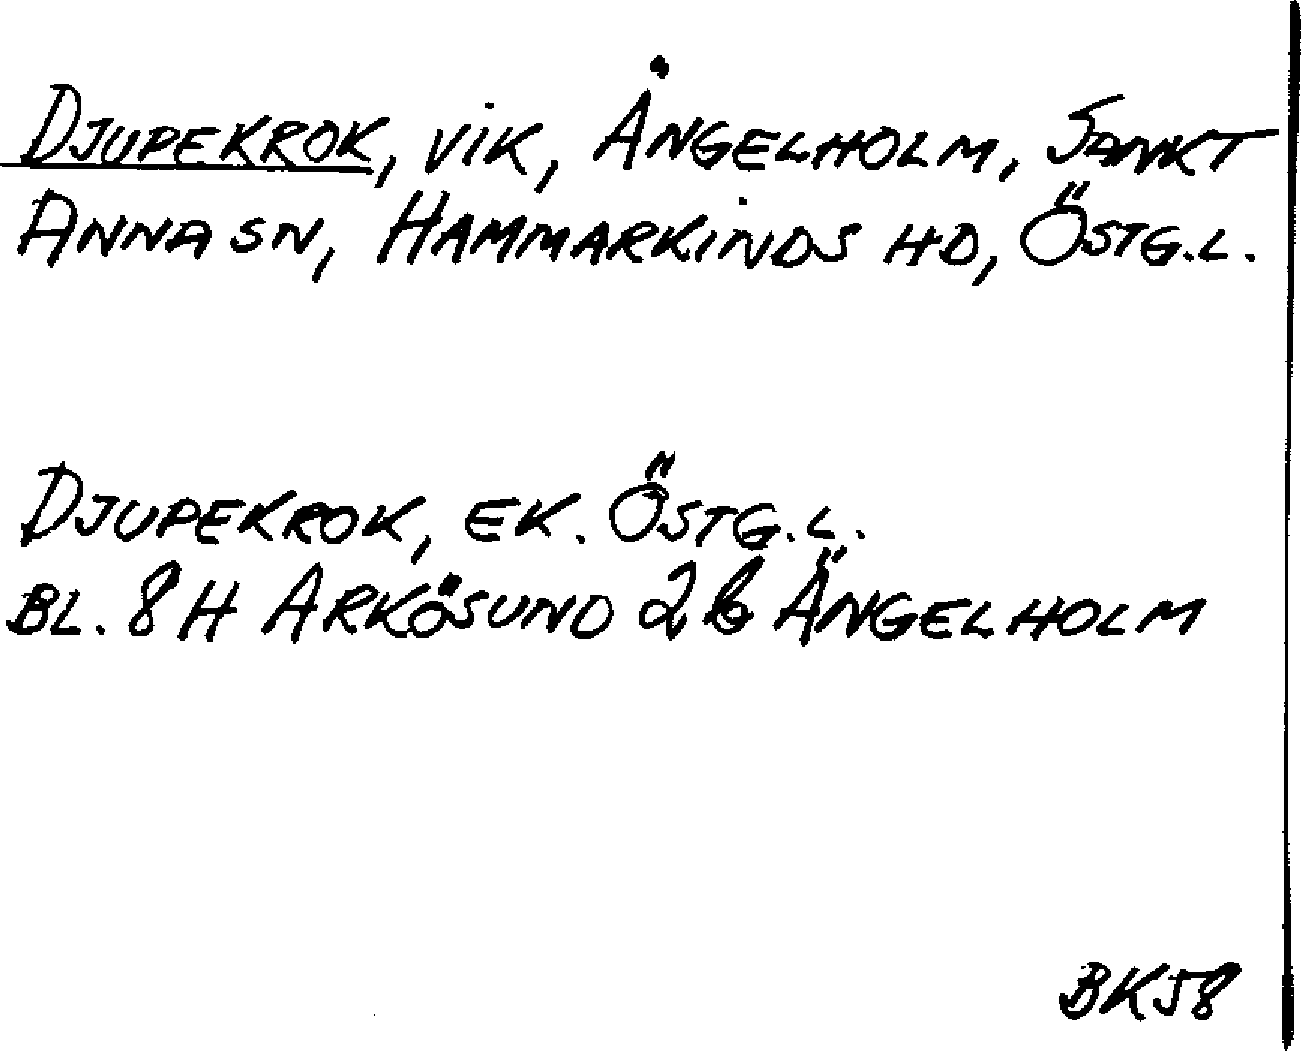 DJUPEKROK, VIK, ÅNGELHOLM, SANKT
ANNA SN, HAMMARKINDS HD, ÖSTG.L.
DJUPEKROK, EK. ÖSTG.L.
BL. 8H ARKÖSUND 2b ÄNGELHOLM
BK58